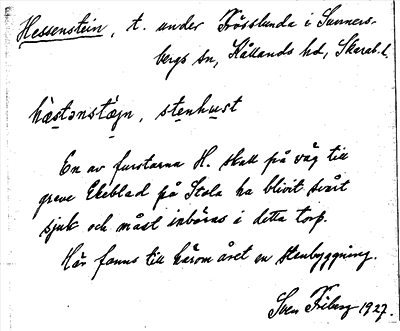 Hessenstein, t. under Trösslunda i Sunners-
bergs sn, Kållands hd, Skarab. l.
hæstənstæjn, stenhust
En av furstarna H. skall på väg till
greve Ekeblad på Stola ha blivit svårt
sjuk och måst inbäras i detta torp.
Här fanns till härom året en stenbyggning.
Sven Friberg 1927.